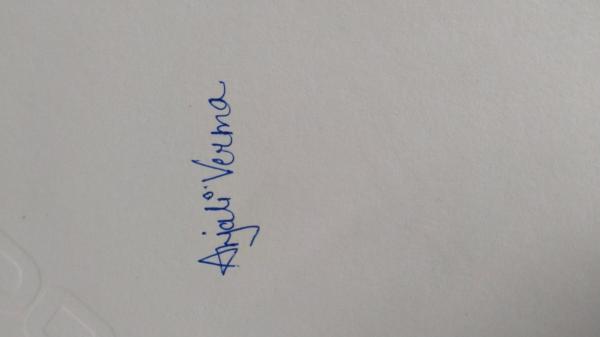 Anjali Verma